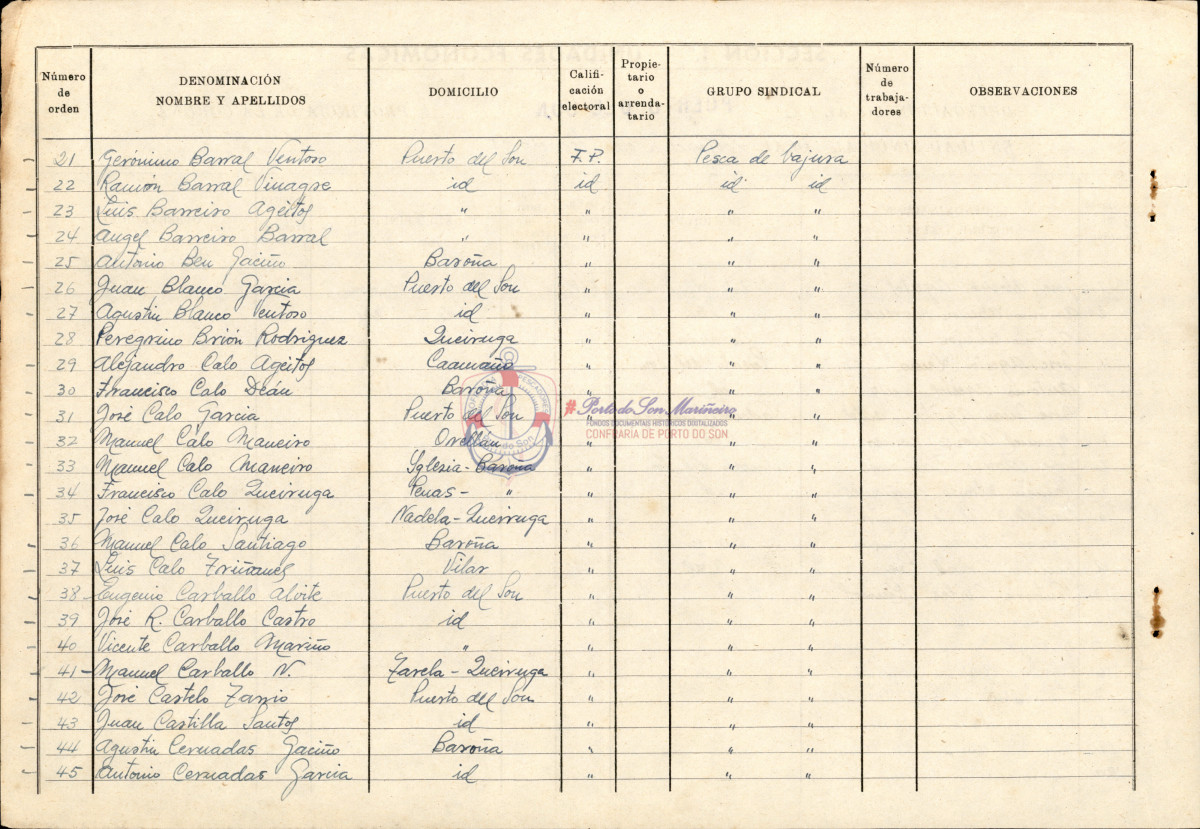 Número de orden	DENOMINACIÓN NOMBRE Y APELLIDOS	DOMICILIO	Califi-cación electoral	Propie-tario o arrenda-tario	GRUPO SINDICAL	Número de trabaja-dores	OBSERVACIONES
21 Gerónimo Barral Ventoso Puerto del Son F.P. Pesca de bajura
22 Ramón Barral Vinagre id id id id
23 Luis Barreiro Ageitos " " " "
24 Angel Barreiro Barral " " " "
25 Antonio Ben Gaciño Baroña " " "
26 Juan Blanco García Puerto del Son " " "
27 Agustin Blanco Ventoso id " " "
28 Peregrino Brión Rodriguez Queiruga " " "
29 Alejandro Calo Ageitos Caamaño " " "
30 Francisco Calo Deán Baroña " " "
31 José Calo Garcia Puerto del Son " "
32 Manuel Calo Maneiro Orellán " " "
33 Manuel Calo Maneiro Yglesia-Baroña " " "
34 Francisco Calo Queiruga Penas- " " " "
35 José Calo Queiruga Nadela-Queiruga " " "
36 Manuel Calo Santiago Baroña " " "
37 Luis Calo Triñanes Vilar " " "
38 Eugenio Carballo Alvite Puerto del Son " " "
39 José R. Carballo Castro id " " "
40 Vicente Carballo Mariño " " " "
41 - Manuel Carballo N. - Queiruga " " "
42 José Castelo Puerto del Son " " "
43 Juan Castilla Santos id " " "
44 Agustin Cernadas Gaciño Baroña " " "
45 Antonio Cernadas Garcia id " " "
#Porto do Son Mariñeiro
FONDOS DOCUMENTAIS HISTÓRICOS DIXITALIZADOS
CONFRARIA DE PORTO DO SON